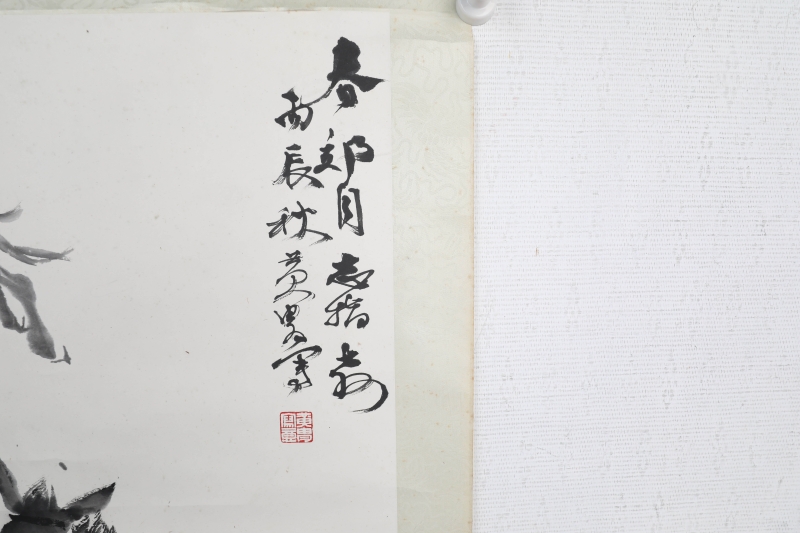 春郊同志指教
丙辰秋黄胄写
黄胄